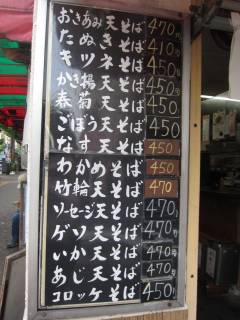 おきあみ天そば 470円
たぬきそば 410円
キツネそば 450円
かき揚天そば 450円
春菊天そば 450
ごぼう天そば 450
なす天そば 450
わかめそば 450
竹輪天そば 470
ソーセージ天そば 470円
ゲソ天そば 470円
いか天そば 470円
あじ天そば 470円
コロッケそば 450円